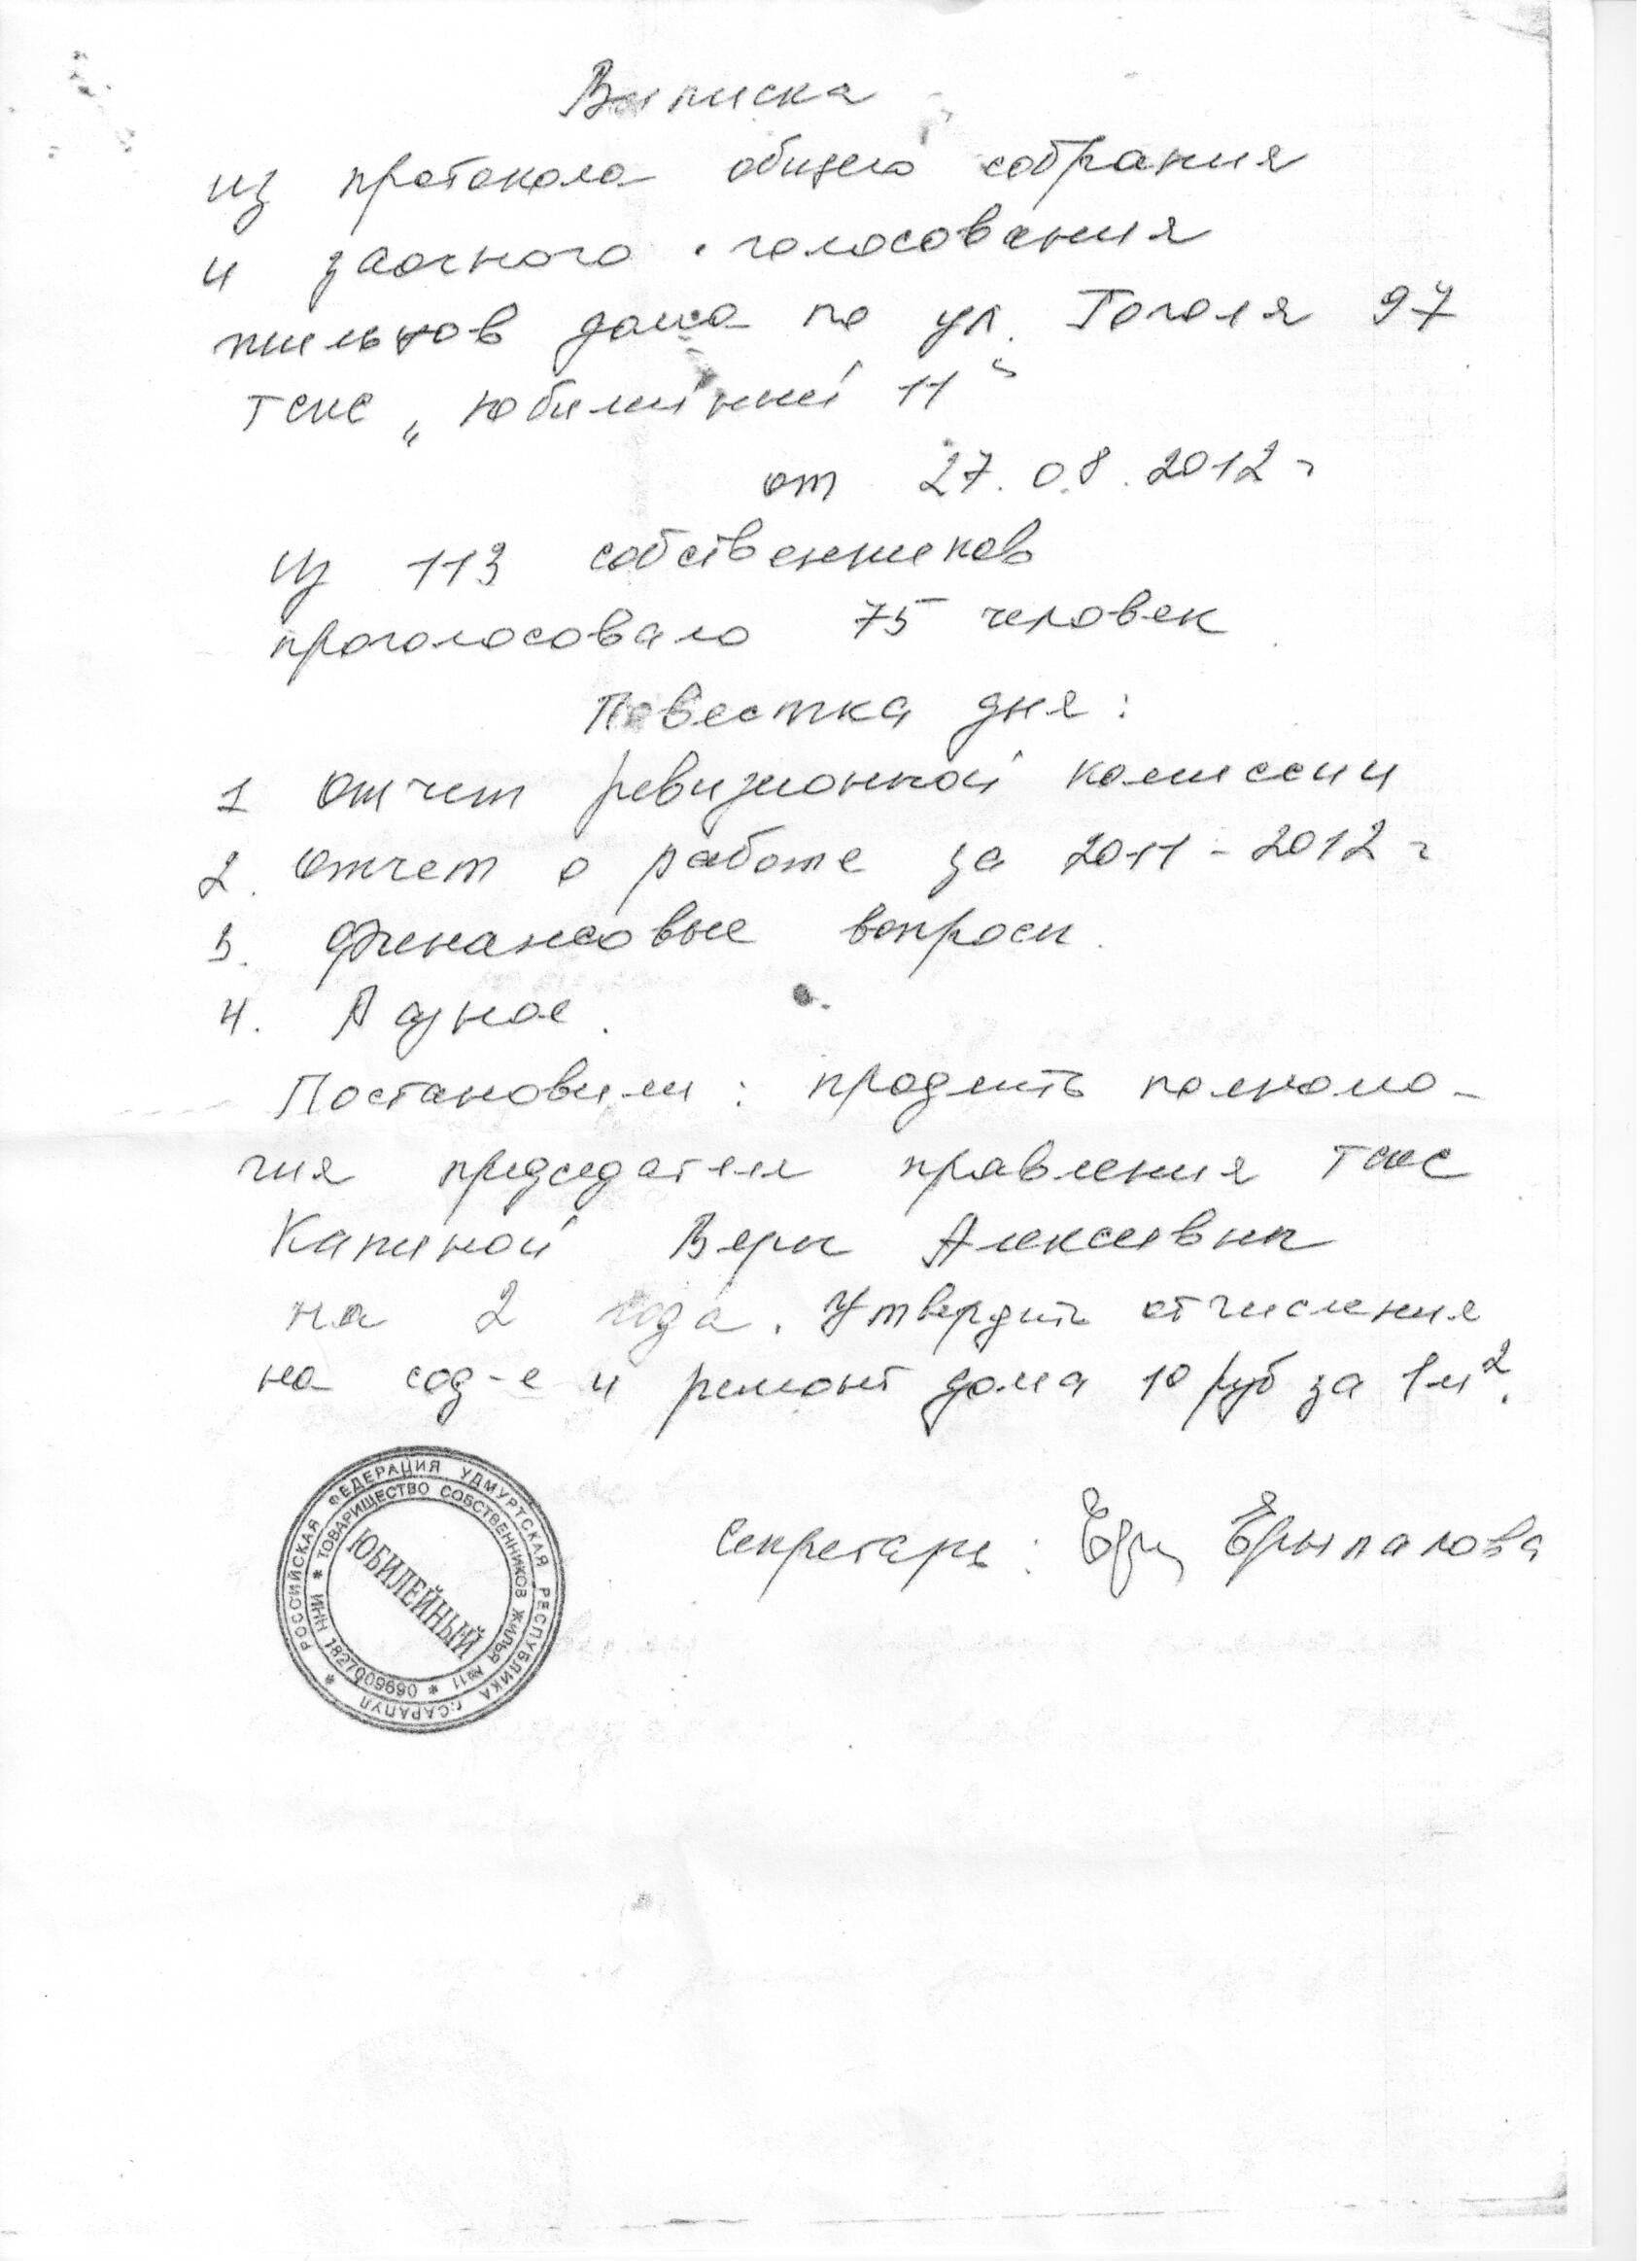 Выписка
из протокола общего собрания
и заочного голосования
жильцов дома по ул. Гоголя 97
ТСЖ „Юбилейный 11"
от 27.08.2012 г
Из 113 собственников
проголосовало 75 человек
Повестка дня:
1 Отчет ревизионной комиссии
2. Отчет о работе за 2011-2012 г
3. Финансовые вопросы.
4. Разное.
Постановили: продлить полномо-
чия председателя правления ТСЖ
Капиной Веры Алексеевны
на 2 года. Утвердить отчисления
на сод-е и ремонт дома 10 руб за 1 м².
Секретарь:
* РОССИЙСКАЯ ФЕДЕРАЦИЯ УДМУРТСКАЯ РЕСПУБЛИКА г.САРАПУЛ
* ТОВАРИЩЕСТВО СОБСТВЕННИКОВ ЖИЛЬЯ №11 * ИНН 1827009690
ЮБИЛЕЙНЫЙ